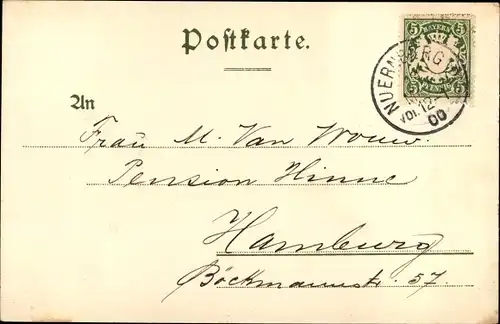 Postkarte.
BAYERN
5 5
NUERNBERG
VOR. 12-1
00
5 5
An
Frau M. Van Wouw.
Pension Hinne
Hamburg
Böckmannstr. 57.